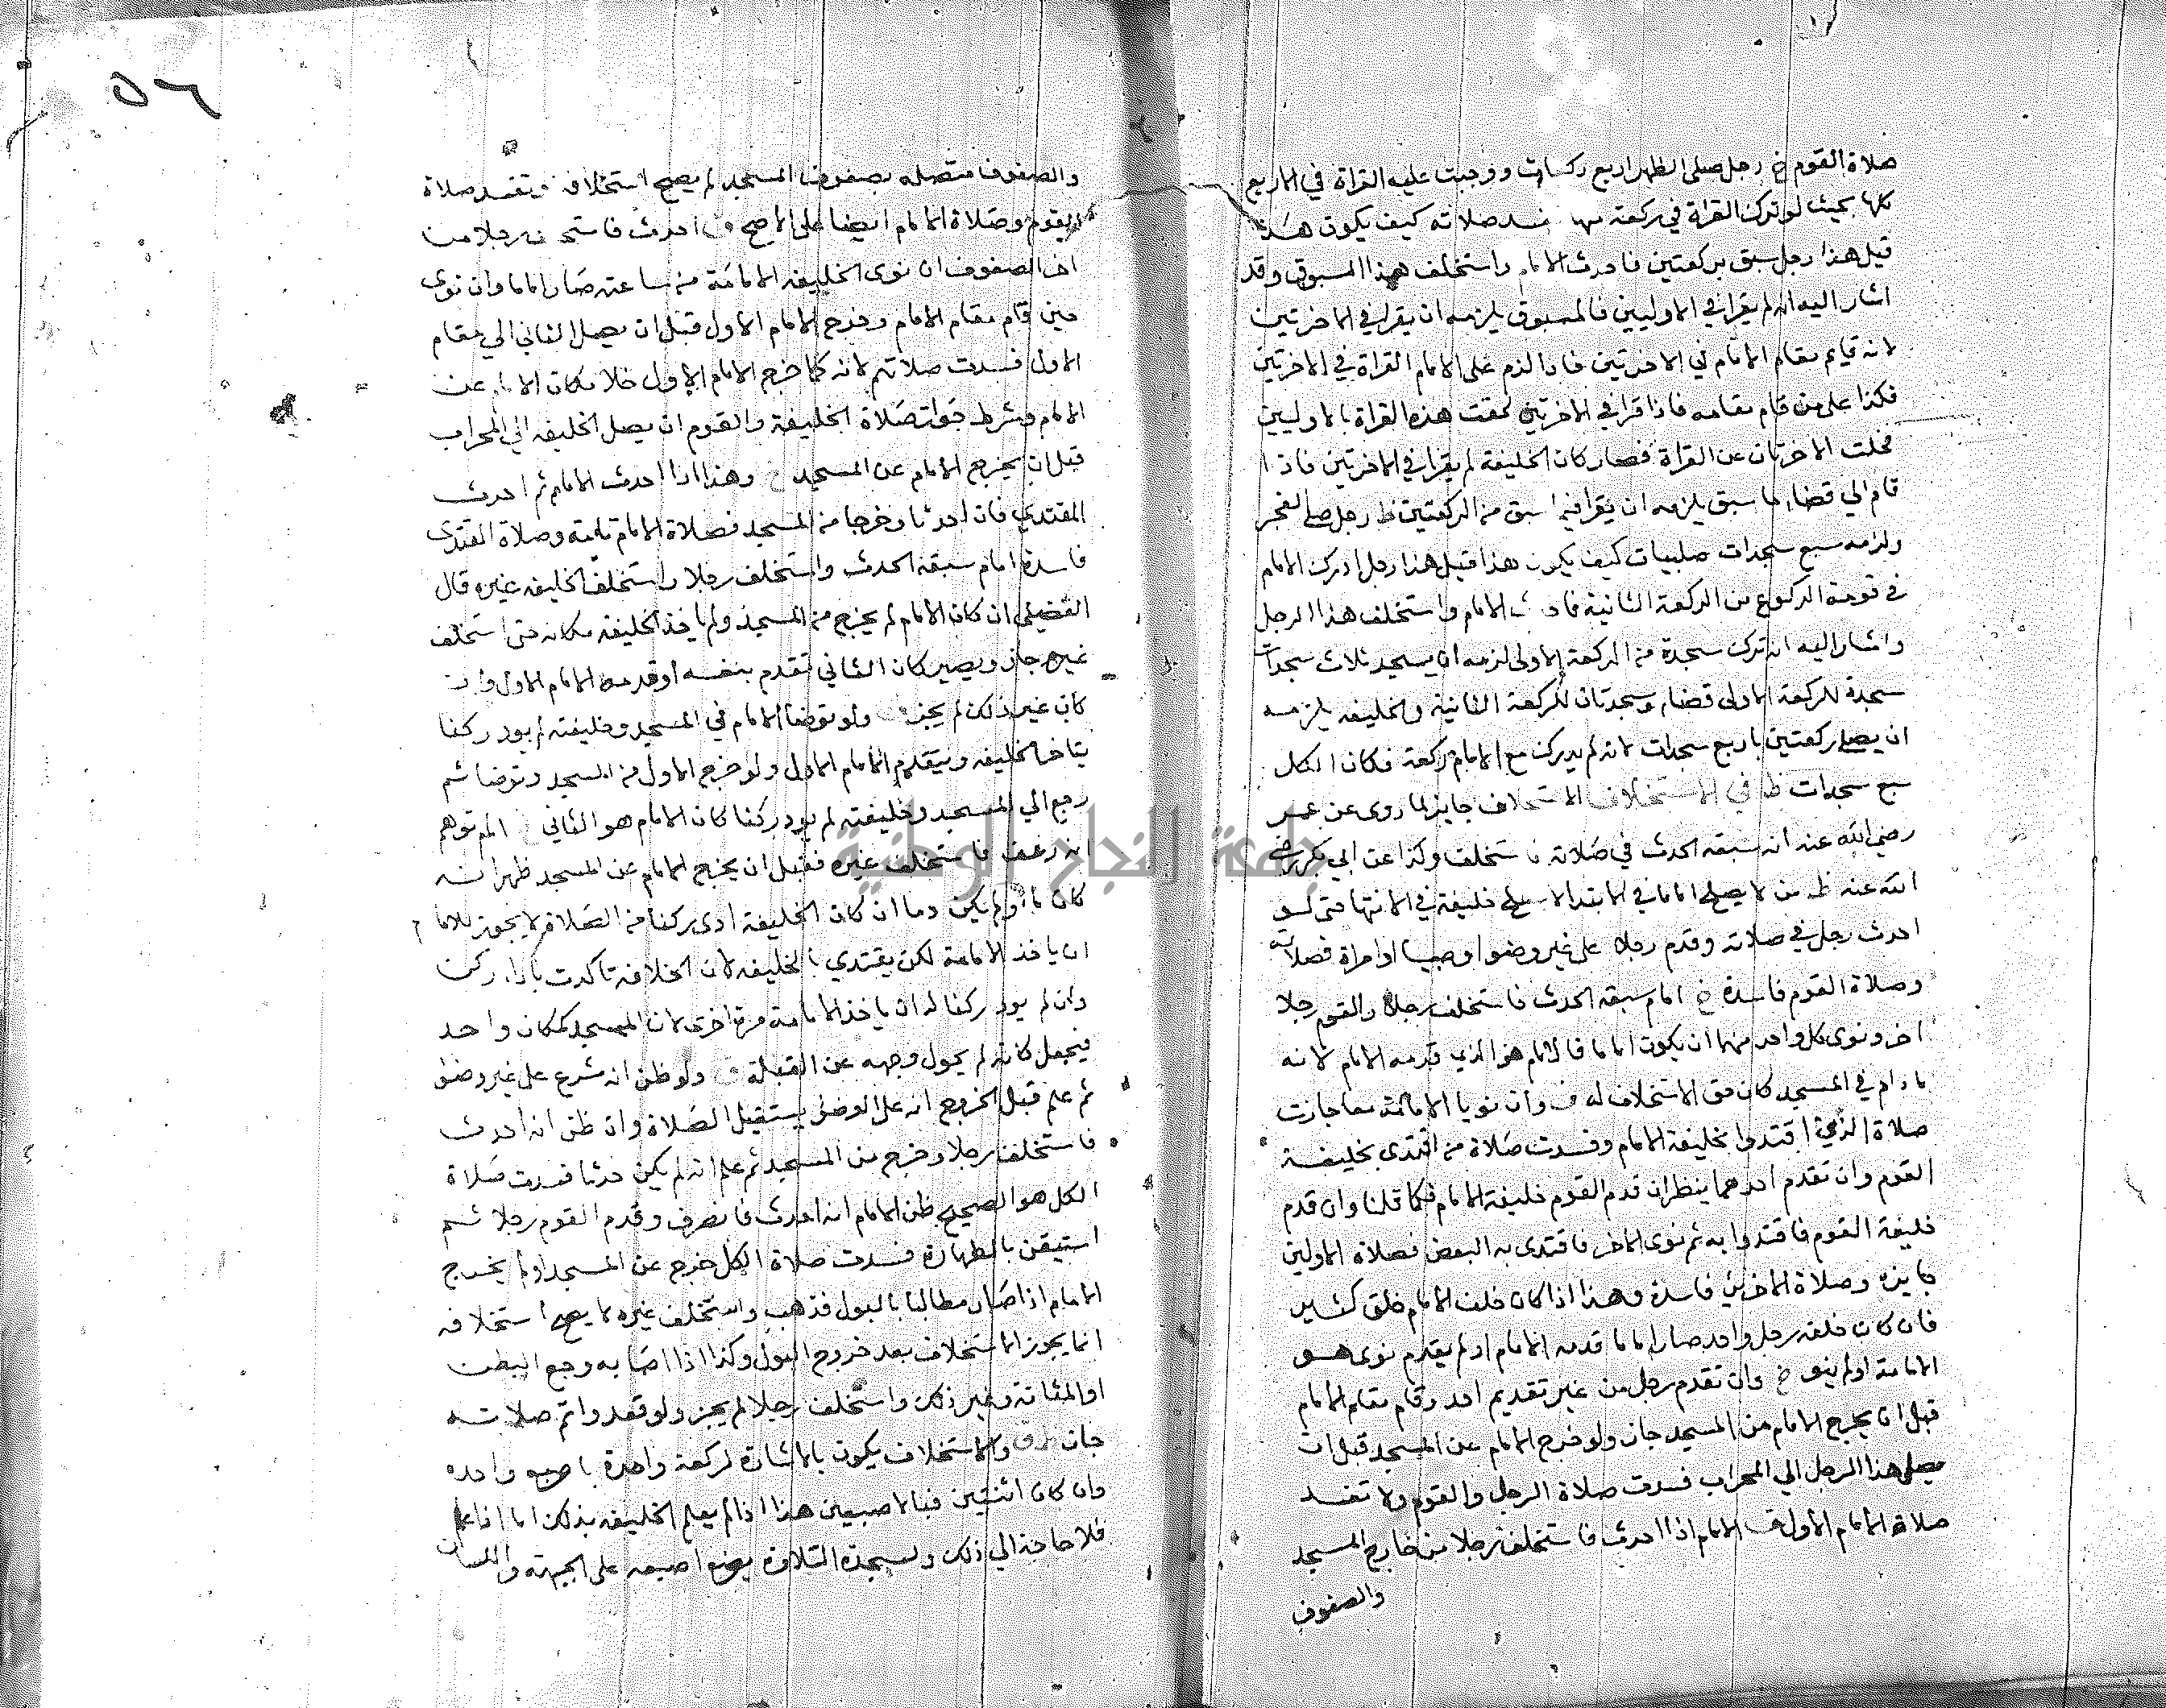 صلاة القوم خ رجل صلى الظهر اربع ركعات ووجبت عليه القراة في الاربع
كلها بحيث لو ترك القراة في ركعة منها فسد صلاته كيف يكون هذا
قيل هذا رجل سبق بركعتين فاحدث الامام واستخلف هذا المسبوق وقد
اشار اليه انه لم يقرا في الاوليين فالمسبوق يلزمه ان يقرا في الاخرتين
لانه قايم مقام الامام في الاخرتين فاذا لزم على الامام القراة في الاخرتين
فكذا على من قام مقامه فاذا قرا في الاخرتين لحقت هذه القراة بالاوليين
فخلت الاخرتان عن القراة فصار كان الخليفة لم يقرا في الاخرتين فاذا
قام الي قضا ما سبق يلزمه ان يقرا فيما سبق من الركعتين ظ رجل صلى الفجر
ولزمه سبع سجدات صلبيات كيف يكون هذا قيل هذا رجل ادرك الامام
في قومة الركوع من الركعة الثانية فاحدث الامام واستخلف هذا الرجل
واشار اليه انه ترك سجدة من الركعة الاولى لزمه ان يسجد ثلاث سجدات
سجدة للركعة الاولى قضا وسجدتان للركعة الثانية والخليفه يلزمه
ان يصلي ركعتين باربع سجدات لانه لم يدرك مع الامام ركعة فكان الكل
سبع سجدات ظ في الاستخلاف الاستخلاف جايز لما روى عن عمر
رضي الله عنه انه سبقه الحدث في صلاته فاستخلف وكذا عن ابي بكر رضي
الله عنه ظ من لا يصلح اماما في الابتدا لا يصلح خليفة في الانتها حتى لو
احدث رجل في صلاته وقدم رجلا على غير وضوا وصبيا او امراة فصلاته
وصلاة القوم فاسدة خ امام سبقه الحدث فاستخلف رجلا والقوم رجلا
اخر ونوى كل واحد منهما ان يكون اماما فالامام هو الذي قدمه الامام لانه
مادام في المسجد كان حق الاستخلاف له ف وان نويا الامامة معا جازت
صلاة الذين اقتدوا بخليفة الامام وفسدت صلاة من اقتدى بخليفة
القوم وان تقدم احدهما ينظر ان قدم القوم خليفة الامام فكما قلنا وان قدم
خليفة القوم فاقتدوا به ثم نوى الاخر فاقتدى به البعض فصلاة الاولين
جايزه وصلاة الاخرين فاسدة وهذا اذا كان خلف الامام خلق كثير
فان كان خلفه رجل واحد صار اماما قدمه الامام او لم يقدم نوى هو
الامامة او لم ينو خ وان تقدم رجل من غير تقديم احد وقام مقام الامام
قبل ان يخرج الامام من المسجد جاز ولو خرج الامام عن المسجد قبل ان
يصل هذا الرجل الي المحراب فسدت صلاة الرجل والقوم ولا تفسد
صلاة الامام الاول ف الامام اذا احدث فاستخلف رجلا من خارج المسجد
والصفوف
٥٦
والصفوف متصله بصفوف المسجد لم يصح استخلافه وتفسد صلاة
القوم وصلاة الامام ايضا على الاصح احدث فاستخلف رجلا من
اخر الصفوف ان نوى الخليفه الامامة من ساعته صار اماما وان نوى
حين قام مقام الامام وخرج الامام الاول قبل ان يصل الثاني الي مقام
الاول فسدت صلاتهم لانه كما خرج الامام الاول خلا مكان الامام عن
الامام وشرط جواز صلاة الخليفة والقوم ان يصل الخليفه الي المحراب
قبل ان يخرج الامام عن المسجد خ وهذا اذا احدث الامام ثم احدث
المقتدي فان احدثا وخرجا من المسجد فصلاة الامام تامة وصلاة المقتدى
فاسدة امام سبقه الحدث واستخلف رجلا واستخلف الخليفه غيره قال
الفضلي ان كان الامام لم يخرج من المسجد ولم ياخذ الخليفة مكانه حتى استخلف
غيره جاز ويصير كان الثاني تقدم بنفسه او قدمه الامام الاول وان
كان غير ذلك لم يجز ولو توضا الامام في المسجد وخليفته لم يود ركنا
يتاخر الخليفه ويتقدم الامام الاول ولو خرج الاول من المسجد وتوضا ثم
رجع الي المسجد وخليفته لم يود ركنا كان الامام هو الثاني الامام توهم
انه رعف فاستخلف غيره فقبل ان يخرج الامام عن المسجد ظهر انه
كان ما ولم يكن دما ان كان الخليفة ادى ركنا من الصلاة لا يجوز للامام
ان ياخذ الامامة لكن يقتدي بالخليفه لان الخلافه تاكدت بادا ركن
وان لم يود ركنا له ان ياخذ الامامة مرة اخرى لان المسجد كمكان واحد
فيجعل كانه لم يحول وجهه عن القبلة ولو ظن انه شرع على غير وضو
ثم علم قبل الخروج انه على الوضو يستقبل الصلاة وان ظن انه احدث
فاستخلف رجلا وخرج من المسجد ثم علم انه لم يكن حدثا فسدت صلاة
الكل هو الصحيح ظن الامام انه احدث فانصرف وقدم القوم رجلا ثم
استيقن بالطهارة فسدت صلاة الكل خرج عن المسجد او لم يخرج
الامام اذا صار مطالبا بالبول فذهب واستخلف غيره لا يصح استخلافه
انما يجوز الاستخلاف بعد خروج البول وكذا اذا اصابه وجع البطن
او المثانة وغير ذلك واستخلف رجلا لم يجز ولو قعد واتم صلاته
جاز والاستخلاف يكون بالاشارة لركعة واحدة باصبع واحده
وان كان اثنتين فبالاصبعين هذا اذا لم يعلم الخليفه بذلك اما اذا علم
فلا حاجة الي ذلك ولسجدة التلاوة يضع اصبعه على الجبهة واللسان
جامعة النجاح الوطنية